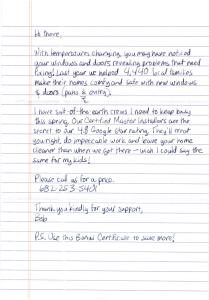 Hi there,
With temperatures changing, you may have noticed
your windows and doors revealing problems that need
fixing! Last year we helped 4,440 local families
make their homes comfy and safe with new windows
& doors (patio & entry).
I have salt-of-the-earth crews I need to keep busy
this spring. Our Certified Master Installers are the
secret to our 4.8 Google star rating. They'll treat
you right, do impeccable work and leave your home
cleaner than when we got there - wish I could say the
same for my kids!
Please call us for a price.
682-253-5401
Thank you kindly for your support,
Bob
P.S. Use this Bonus Certificate to save more!